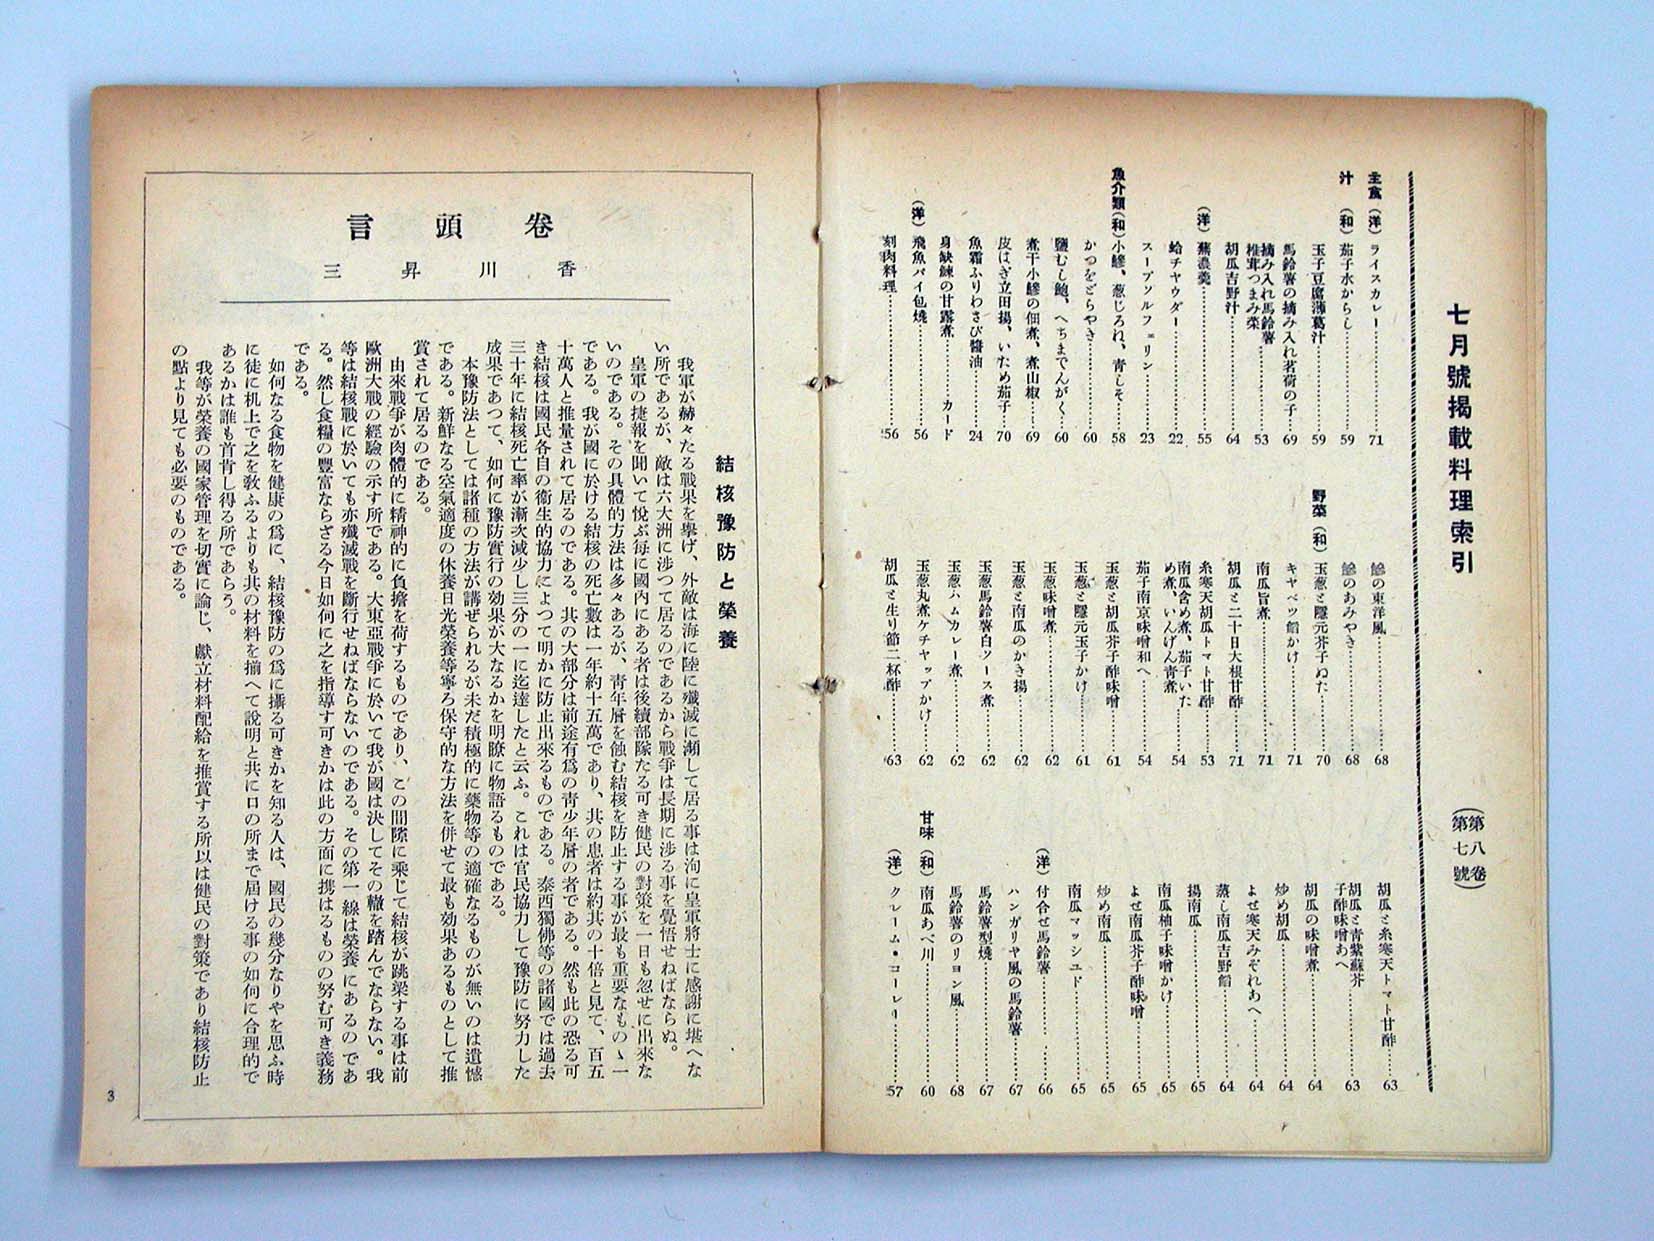 七月號揭載料理索引
（第八卷
第七號）
主食（洋）ライスカレー……71
汁（和）茄子水からし……59
玉子豆腐薄葛汁……59
馬鈴薯の摘み入れ茗荷の子……69
摘み入れ馬鈴薯
椎茸つまみ菜……53
胡瓜吉野汁……64
（洋）蕪濃羹……55
蛤チヤウダー……22
スープソルフェリン……23
魚介類（和）小鰺、葱じろね、青しそ……58
かつをどらやき……60
鹽むし鮑、へちまでんがく……60
煮干小鰺の佃煮、煮山椒……69
皮はぎ立田揚、いため茄子……70
魚霜ふりわさび醬油……24
身缺鰊の甘露煮……カード
（洋）飛魚パイ包燒……56
刻肉料理……56
鰺の東洋風……68
鰺のあみやき……68
野菜（和）玉葱と隱元芥子ぬた……70
キャベツ餡かけ……71
南瓜旨煮……71
胡瓜と二十日大根甘酢……71
糸寒天胡瓜トマト甘酢……53
南瓜含め煮、茄子いた
め煮、いんげん青煮……54
茄子南京味噌和へ……54
玉葱と胡瓜芥子酢味噌……61
玉葱と隱元玉子かけ……61
玉葱味噌煮……62
玉葱と南瓜のかき揚……62
玉葱馬鈴薯白ソース煮……62
玉葱ハムカレー煮……62
玉葱丸煮ケチヤップかけ……62
胡瓜と生り節二杯酢……63
胡瓜と糸寒天トマト甘酢……63
胡瓜と青紫蘇芥
子酢味噌あへ……63
胡瓜の味噌煮……64
炒め胡瓜……64
よせ寒天みぞれあへ……64
蒸し南瓜吉野餡……64
揚南瓜……65
南瓜柚子味噌かけ……65
よせ南瓜芥子酢味噌……65
炒め南瓜……65
南瓜マッシユド……65
（洋）付合せ馬鈴薯……66
ハンガリヤ風の馬鈴薯……67
馬鈴薯型燒……67
馬鈴薯のリヨン風……68
甘味（和）南瓜あべ川……60
（洋）クレーム・コーレー……57
卷頭言
香川昇三
結核豫防と榮養
我軍が赫々たる戰果を擧げ、外敵は海に陸に殲滅に瀕して居る事は洵に皇軍將士に感謝に堪へな
い所であるが、敵は六大洲に涉つて居るのであるから戰爭は長期に涉る事を覺悟せねばならぬ。
皇軍の捷報を聞いて悅ぶ每に國內にある者は後續部隊たる可き健民の對策を一日も忽せに出來な
いのである。その具體的方法は多々あるが、靑年層を蝕む結核を防止する事が最も重要なものゝ一
である。我が國に於ける結核の死亡數は一年約十五萬であり、其の患者は約其の十倍と見て、百五
十萬人と推量されて居るのである。其の大部分は前途有爲の靑少年層の者である。然も此の恐る可
き結核は國民各自の衞生的協力によつて明かに防止出來るものである。泰西獨佛等の諸國では過去
三十年に結核死亡率が漸次減少し三分の一に迄達したと云ふ。これは官民協力して豫防に努力した
成果であつて、如何に豫防實行の効果が大なるかを明瞭に物語るものである。
本豫防法としては諸種の方法が講ぜられるが未だ積極的に藥物等の適確なるものが無いのは遺憾
である。新鮮なる空氣適度の休養日光榮養等寧ろ保守的な方法を併せて最も効果あるものとして推
賞されて居るのである。
由來戰爭が肉體的に精神的に負擔を荷するものであり、この間隙に乘じて結核が跳梁する事は前
歐洲大戰の經驗の示す所である。大東亞戰爭に於いて我が國は決してその轍を踏んでならない。我
等は結核戰に於いても亦殲滅戰を斷行せねばならないのである。その第一線は榮養にあるのであ
る。然し食糧の豐富ならざる今日如何に之を指導す可きかは此の方面に携はるものの努む可き義務
である。
如何なる食物を健康の爲に、結核豫防の爲に攝る可きかを知る人は、國民の幾分なりやを思ふ時
に徒に机上で之を敎ふるよりも其の材料を揃へて說明と共に口の所まで屆ける事の如何に合理的で
あるかは誰も首肯し得る所であらう。
我等が榮養の國家管理を切實に論じ、獻立材料配給を推賞する所以は健民の對策であり結核防止
の點より見ても必要のものである。
3